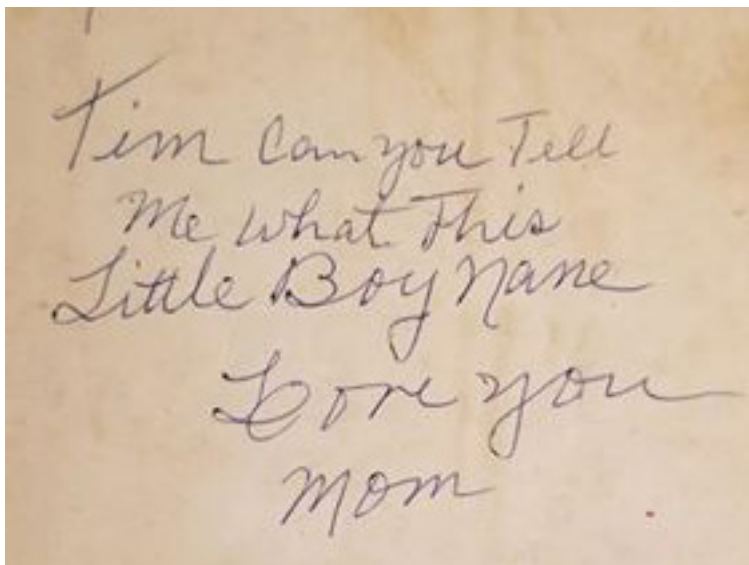 Tim Can you Tell
Me what This
Little Boy Name
Love you
Mom